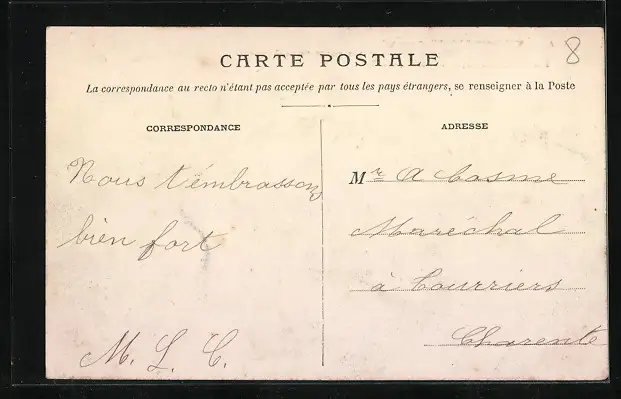 8
CARTE POSTALE
La correspondance au recto n'étant pas acceptée par tous les pays étrangers, se renseigner à la Poste
CORRESPONDANCE
ADRESSE
Nous t'embrassons
bien fort
M. L. C.
Mr A Cosme
Maréchal
à Courriers
Charente